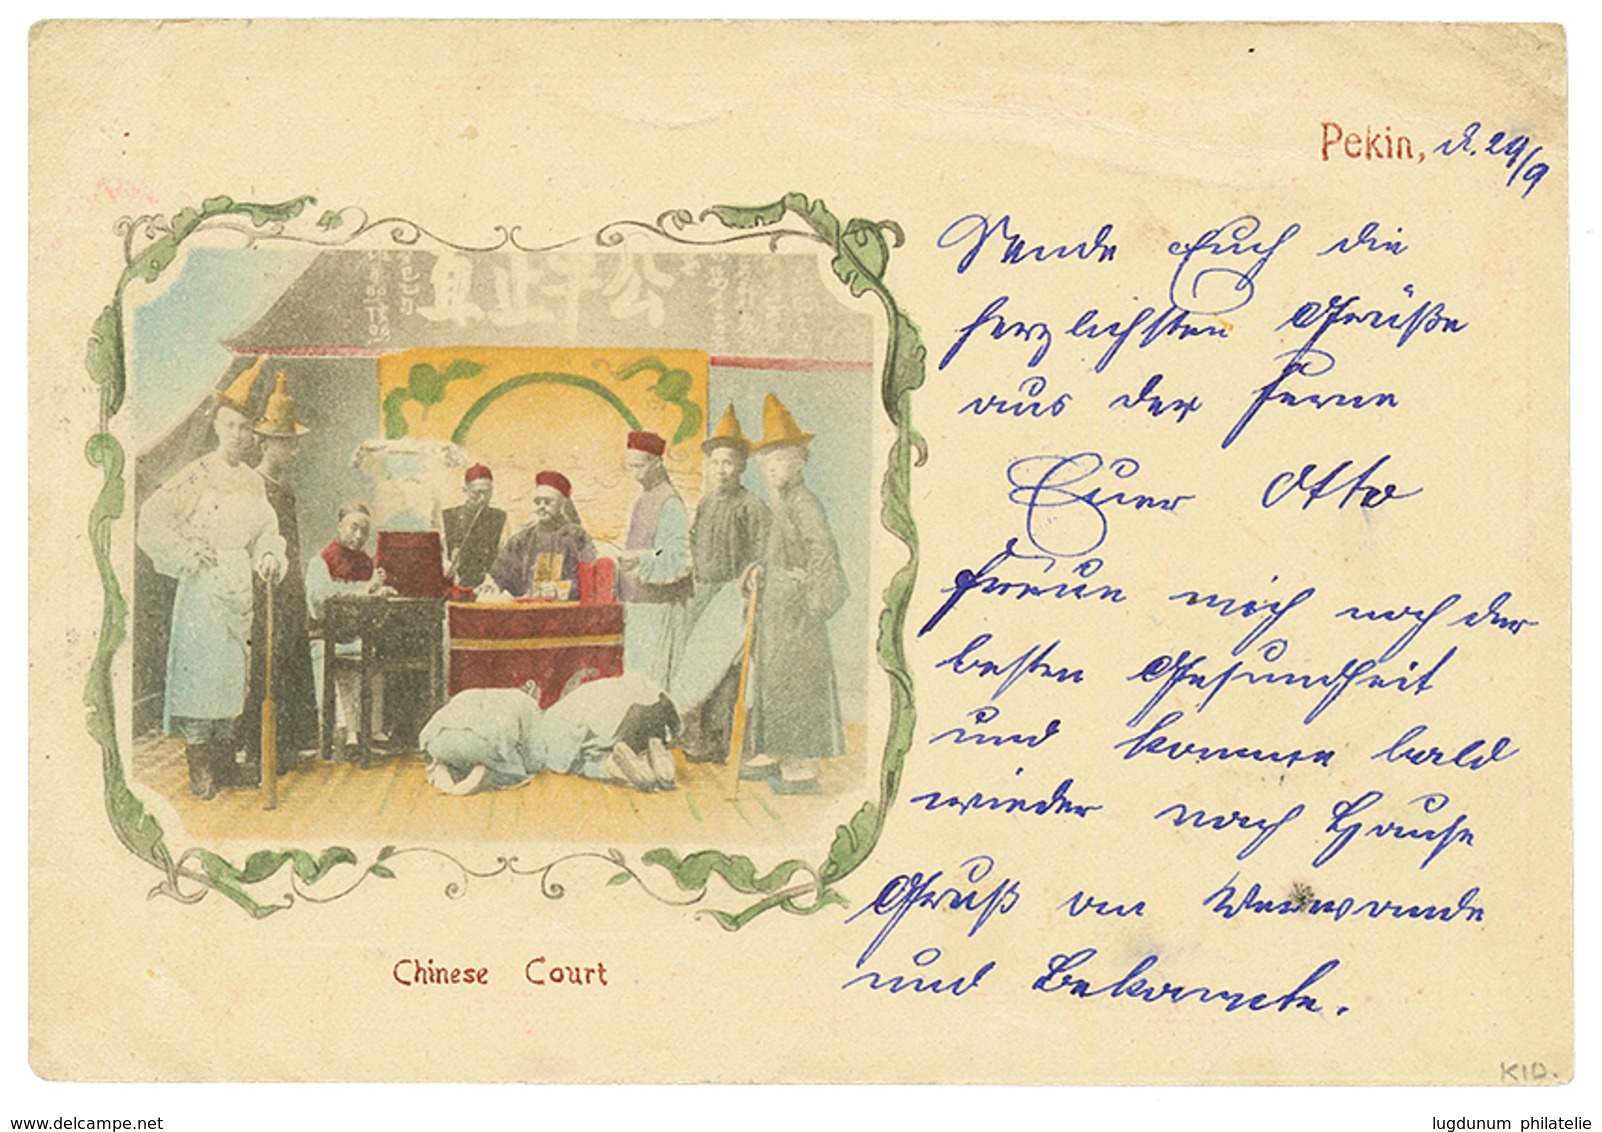 Pekin, d. 29/9
Sende Euch die
herzlichsten Grüße
aus der Ferne
Euer Otto
freue mich noch der
besten Gesundheit
und komme bald
wieder nach Hause
Gruß an Verwande
und Bekannte.
公平正直
Chinese Court
KID.
www.delcampe.net
lugdunum philatelie